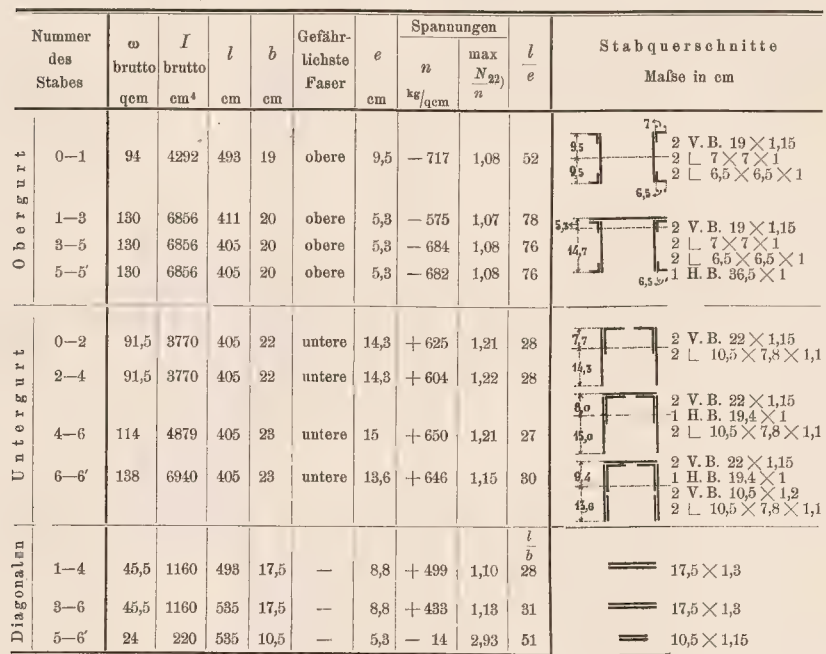 Nummer des Stabes | ω brutto qcm | I brutto cm⁴ | l cm | b cm | Gefährlichste Faser | e cm | Spannungen n kg/qcm | Spannungen max N₂₂) / n | l/e | Stabquerschnitte Maſse in cm
Obergurt
0—1 | 94 | 4292 | 493 | 19 | obere | 9,5 | — 717 | 1,08 | 52 | 7 9,5 9,5 6,5 | 2 V. B. 19 × 1,15
2 ∟ 7 × 7 × 1
2 ∟ 6,5 × 6,5 × 1
1—3 | 130 | 6856 | 411 | 20 | obere | 5,3 | — 575 | 1,07 | 78
3—5 | 130 | 6856 | 405 | 20 | obere | 5,3 | — 684 | 1,08 | 76
5—5′ | 130 | 6856 | 405 | 20 | obere | 5,3 | — 682 | 1,08 | 76
14,7 6,5
2 V. B. 19 × 1,15
2 ∟ 7 × 7 × 1
2 ∟ 6,5 × 6,5 × 1
1 H. B. 36,5 × 1
Untergurt
0—2 | 91,5 | 3770 | 405 | 22 | untere | 14,3 | + 625 | 1,21 | 28
2—4 | 91,5 | 3770 | 405 | 22 | untere | 14,3 | + 604 | 1,22 | 28
7,7 14,3
2 V. B. 22 × 1,15
2 ∟ 10,5 × 7,8 × 1,1
4—6 | 114 | 4879 | 405 | 23 | untere | 15 | + 650 | 1,21 | 27
8,0 15,0
2 V. B. 22 × 1,15
1 H. B. 19,4 × 1
2 ∟ 10,5 × 7,8 × 1,1
6—6′ | 138 | 6940 | 405 | 23 | untere | 13,6 | + 646 | 1,15 | 30
9,4 13,6
2 V. B. 22 × 1,15
1 H. B. 19,4 × 1
2 V. B. 10,5 × 1,2
2 ∟ 10,5 × 7,8 × 1,1
Diagonalen
l/b
1—4 | 45,5 | 1160 | 493 | 17,5 | — | 8,8 | + 499 | 1,10 | 28 | 17,5 × 1,3
3—6 | 45,5 | 1160 | 535 | 17,5 | — | 8,8 | + 433 | 1,13 | 31 | 17,5 × 1,3
5—6′ | 24 | 220 | 535 | 10,5 | — | 5,3 | — 14 | 2,93 | 51 | 10,5 × 1,15